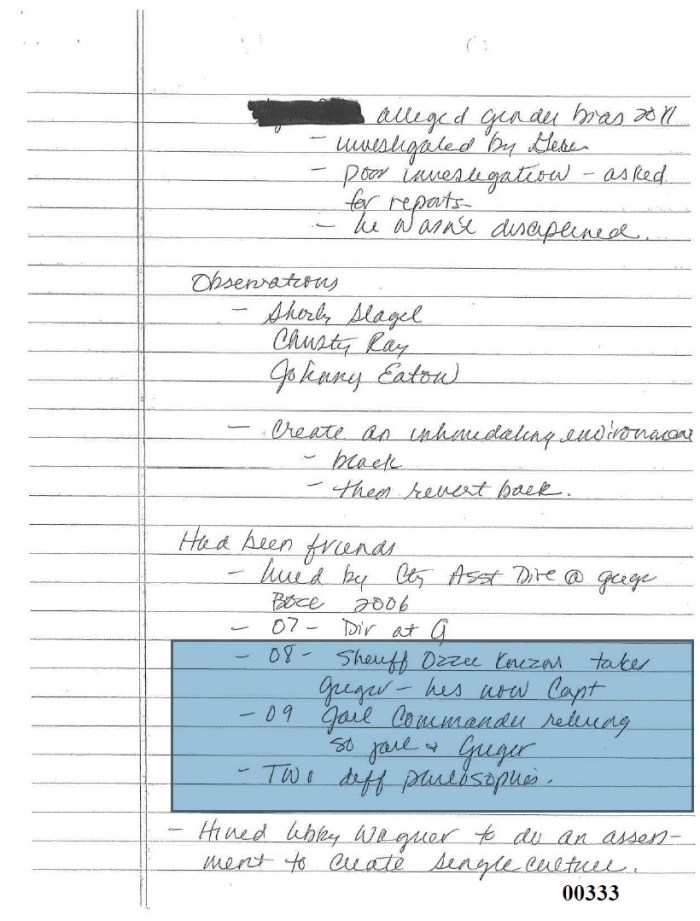 alleged gender bias 2011
- investigated by
- poor investigation - asked
for reports -
- he wasn't disciplined.
Observations
- Slagel
Christy Ray
Johnny Eaton
- Create an intimidating environment
- black
- then revert back.
Had been friends
- hired by Cty Asst Dire @
2006
- 07 - Dir at G
- 08 - Sheriff Ozzie takes
- hes now Capt
- 09 Jail Commander retiring
so jail &
- Two diff philosophies.
- Hired Libby Wagner to do an assess-
ment to create single culture.
00333